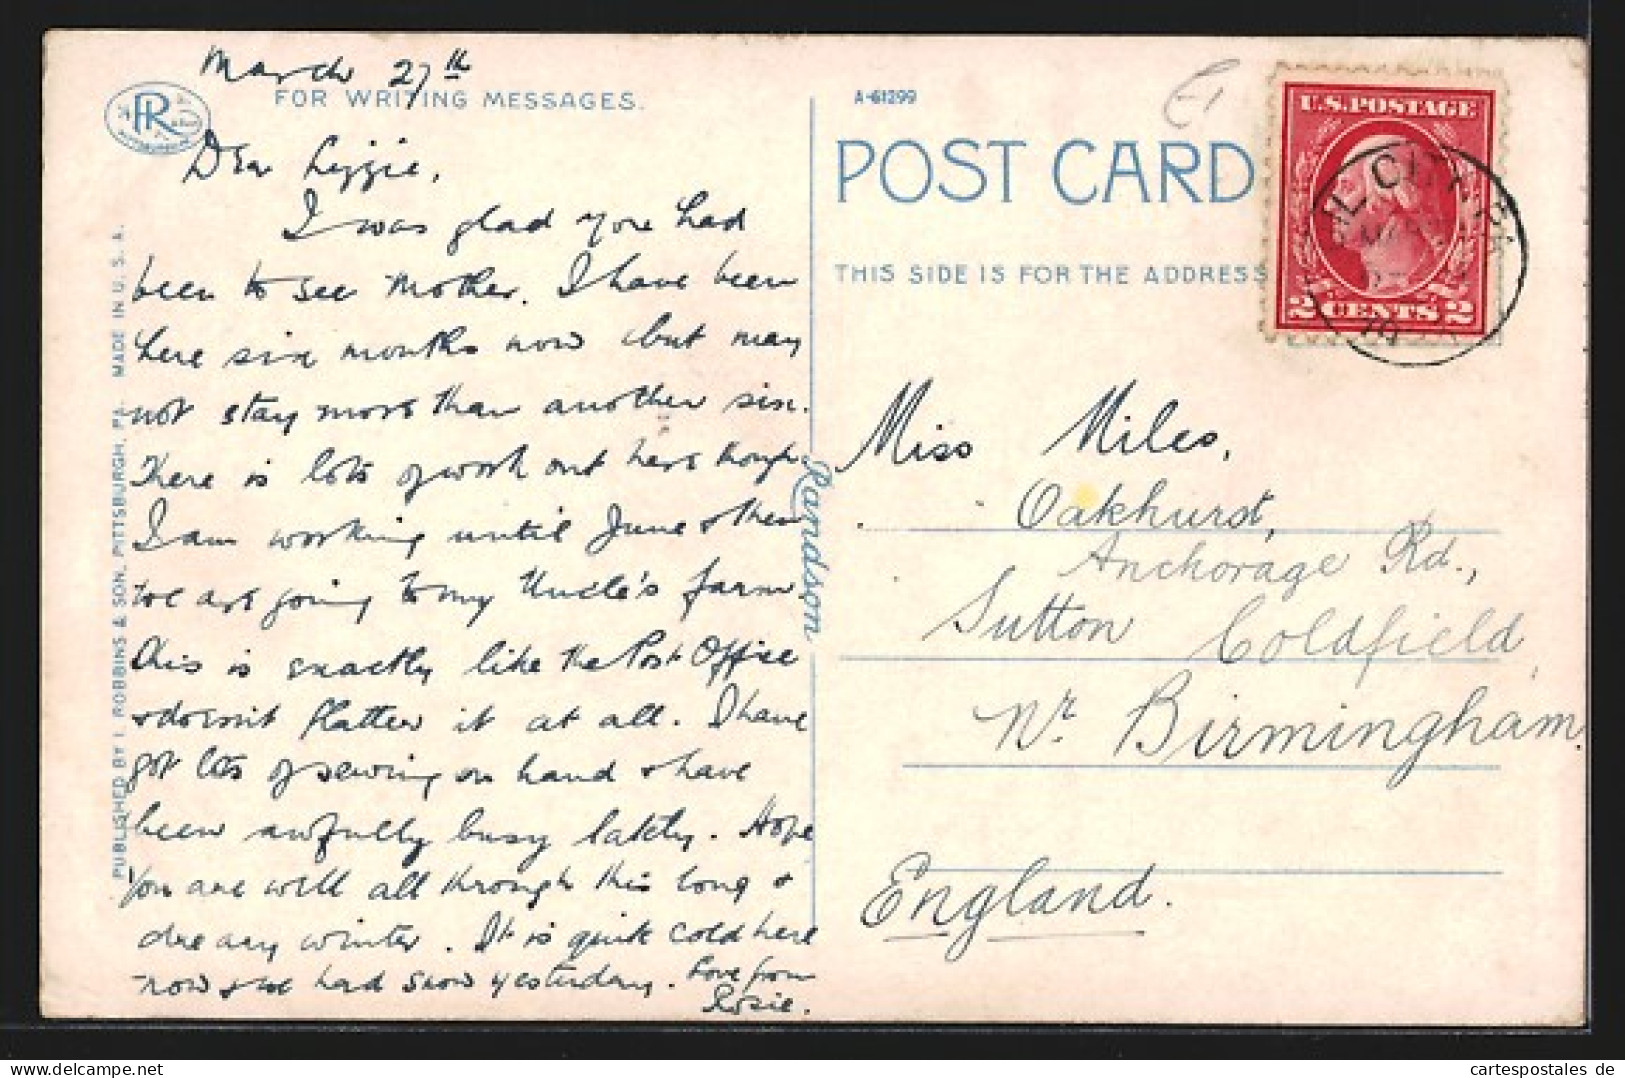 March 27th
FOR WRITING MESSAGES.
Dear Lizzie,
I was glad you had
been to see Mother. I have been
here six months now but may
not stay more than another six.
There is lots of work out here though
I am working until June & then
we are going to my Uncle's farm.
This is exactly like the Post Office
& doesn't flatter it at all. I have
got lots of sewing on hand & have
been awfully busy lately. Hope
you are well all through this long &
dreary winter. It is quite cold here
now & we had snow yesterday. Love from
Rosie.
PUBLISHED BY I. ROBBINS & SON, PITTSBURGH, PA. MADE IN U.S.A.
Randson
A-61299
POST CARD
THIS SIDE IS FOR THE ADDRESS
U.S. POSTAGE
2 CENTS 2
OIL CITY, PA
MAR
Miss Miles,
Oakhurst,
Anchorage Rd.,
Sutton Coldfield,
Nr. Birmingham.
England.
www.cartespostales.de